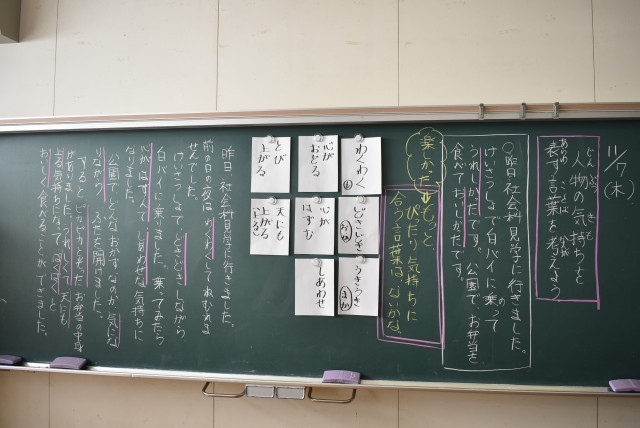 11/17(木)
人物の気持ちを
じんぶつ
きも
表す言葉を考えよう
あらわ
ことば
かんが
○昨日社会村見学に行きました。
けいさつしょで白バイに乗って
の
うれしかったです。公園でお弁当を
食べておいしかったです。
楽しかった
もっと
ぴったり気持ちに
合う言葉はないかな。
わくわく
どきどき
うきうき
心が
おどる
心が
はずむ
しあわせ
とび
上がる
天にも
上がる
昨日、社会村見学に行きました。
前の日の夜は、わくわくしてねむれま
せんでした。
けいさつしょで、どきどきしながら
白バイに乗りました。乗ってみたら
心がはずんで、しあわせな気持ちに
なりました。
公園で、どんなおかずなのか気にな
りながら、ふたを開けました。
すると
お弁当の中身
うれしくて天にも
上る気持ちで、ぱくぱくと
おいしく食べることができました。